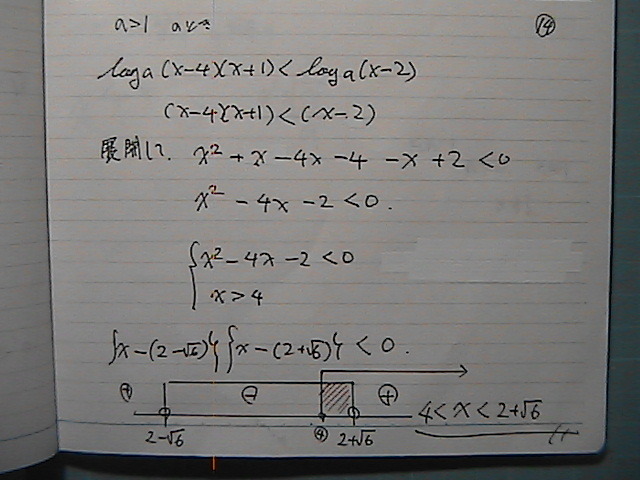 a>1 aとき ⑭
log a (x-4)(x+1) < log a (x-2)
(x-4)(x+1) < (x-2)
展開して. x² + x - 4x - 4 - x + 2 < 0
x² - 4x - 2 < 0.
{ x² - 4x - 2 < 0
x > 4
{x-(2-√6)}{x-(2+√6)} < 0.
⊕ ⊖ ⊕ 4 < x < 2+√6
2-√6 ④ 2+√6